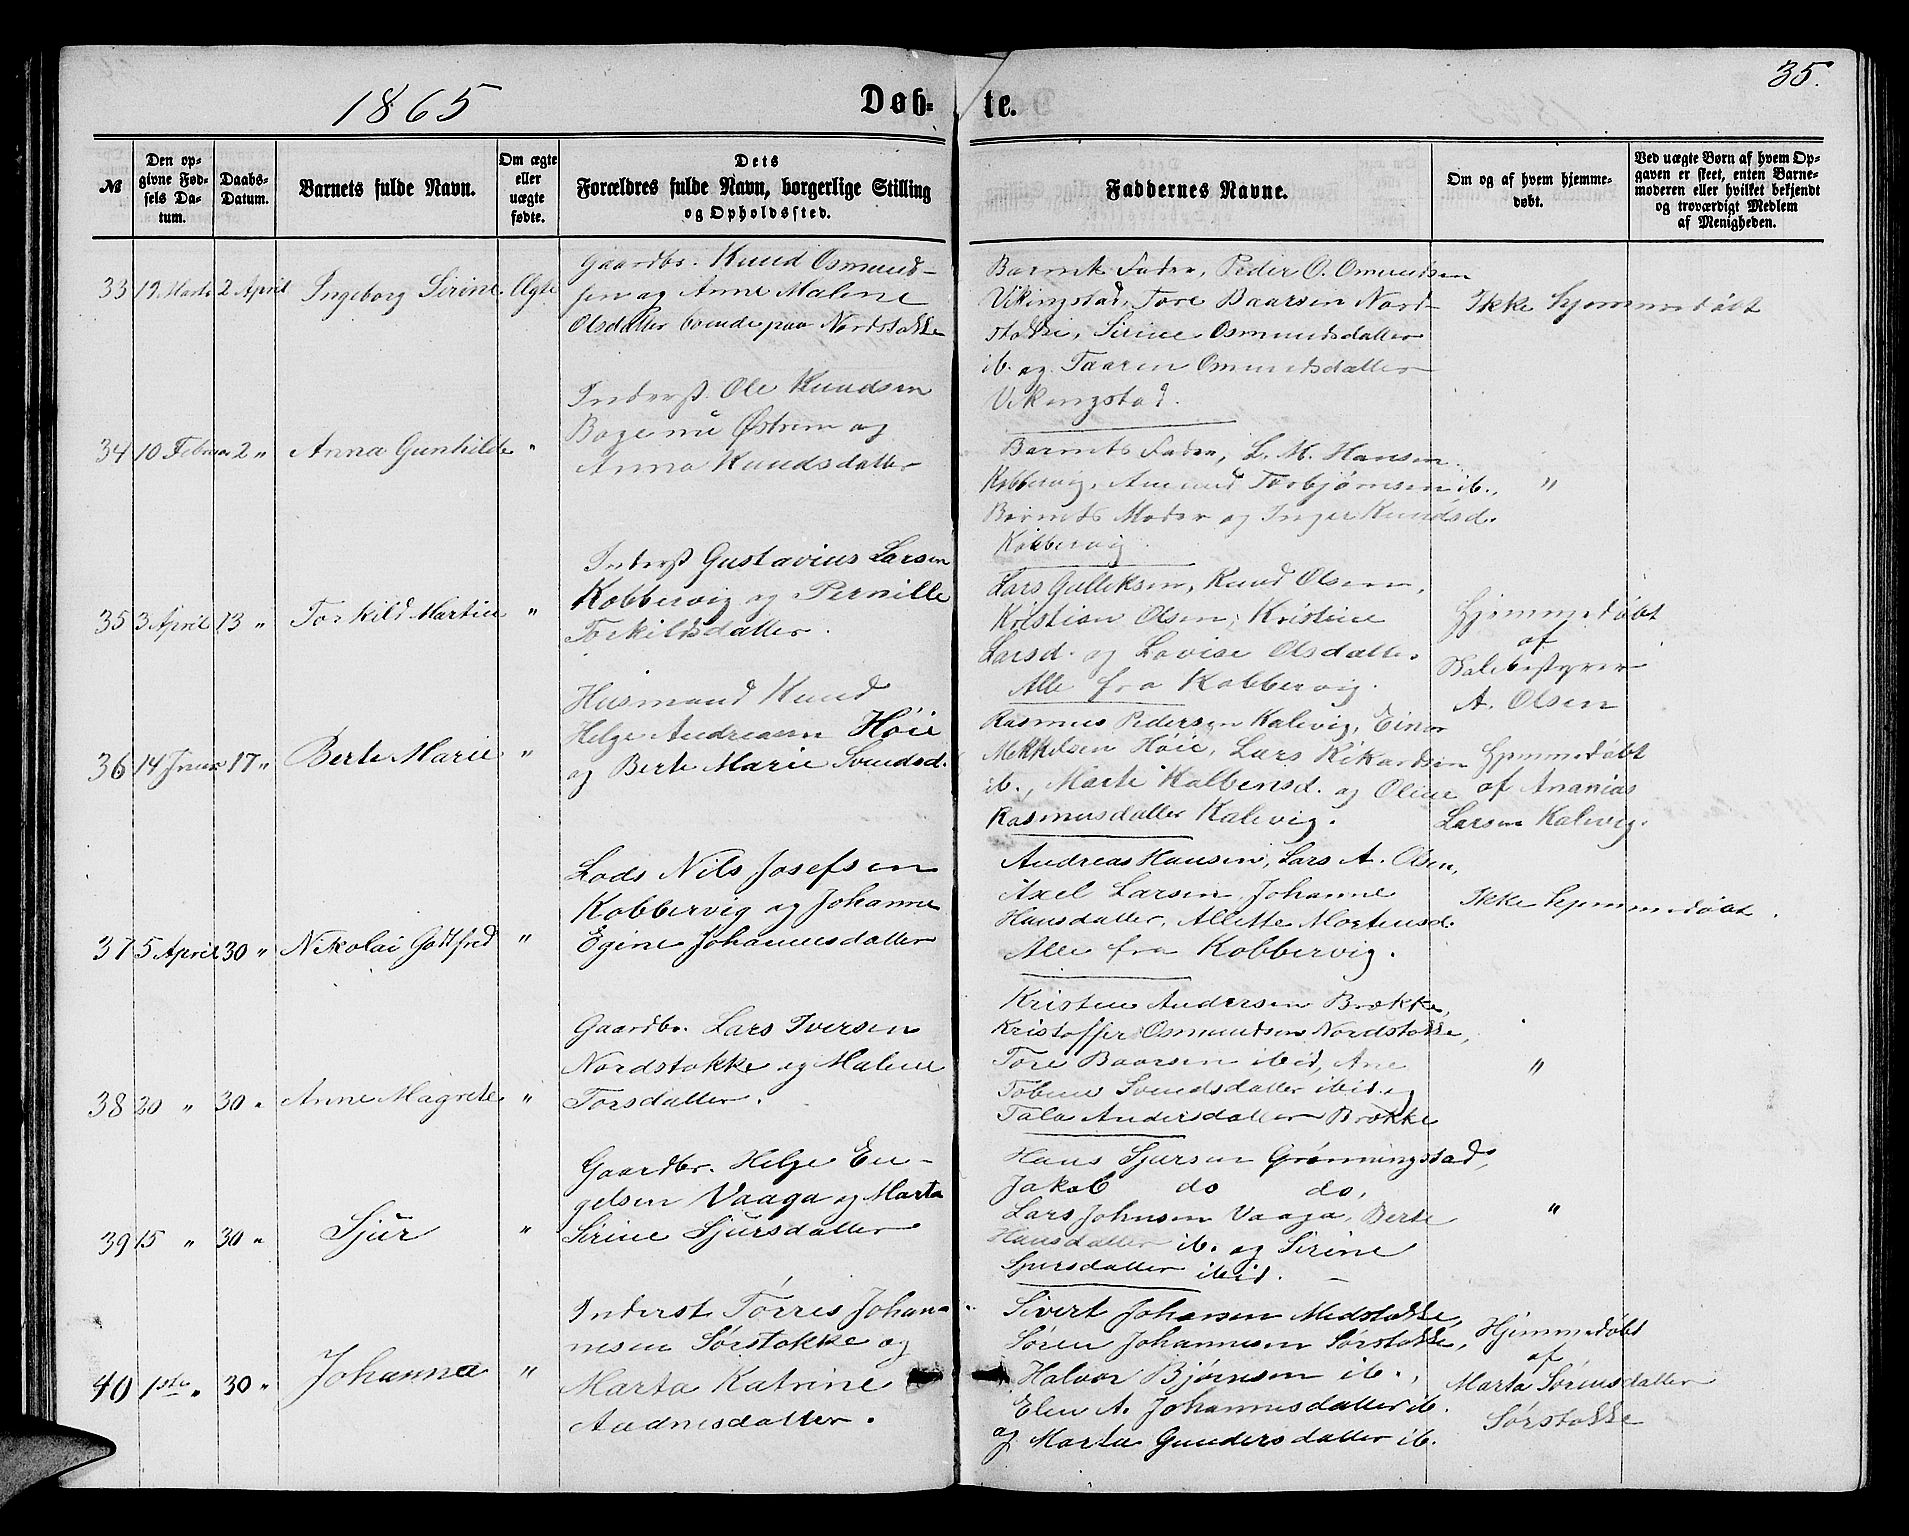 35.
1865
Døb-
te.
№
Den op-
givne Fød-
sels Da-
tum.
Daabs-
Datum.
Barnets fulde Navn.
Om ægte
eller
uægte
fødte.
Dets
Forældres fulde Navn, borgerlige Stilling
og Opholdssted.
Faddernes Navne.
Om og af hvem hjemme-
døbt.
Ved uægte Børn af hvem Op-
gaven er skeet, enten Barne-
moderen eller hvilket bekjendt
og troværdigt Medlem
af Menigheden.
33 19 Marts 2 April Ingeborg Sirine Ægte
Gaardbr. Knud Osmund-
sen og Anne Malene
Olsdatter boende paa Nordstokke
Barnets Fader, Peder O. Osmundsen
Vikingstad, Tore Baarsen Nord-
stokke, Sirine Osmundsdatter
ib. og Taaren Osmundsdatter
Vikingstad.
Ikke hjemmedøbt
34 10 Februar 2 " Anna Gunhilde "
Inderst Ole Knudsen
Bøge nu Østrem og
Anna Knudsdatter
Barnets Fader, L. M. Hansen
Kobbervig, Amund Torbjørnsen ib.,
Barnets Moder og Inger Knudsd.
Kobbervig.
"
35 3 April 13 " Torkild Martin "
Inderst Gustavius Larsen
Kobbervig og Pernille
Torkildsdatter.
Lars Gulleksen, Knud Olsen,
Kristian Olsen, Kristine
Larsd. og Lovise Olsdatter.
Alle fra Kobbervig.
Hjemmedøbt
af
A. Olsen
36 14 Januar 17 " Berte Marie "
Husmand Knud
Helge Andreasen Høie
og Berte Marie Svendsd.
Rasmus Pedersen Kalevig, Einar
Mekkelsen Høie, Lars Rikardsen
ib., Marte Kolbensd. og Oline
Rasmusdatter Kalevig.
Hjemmedøbt
af Ananias
Larsen Kalevig.
37 5 April 30 " Nikolai Gottfred "
Lods Nils Josefsen
Kobbervig og Johanne
Egine Johannesdatter
Andreas Hansen, Lars A. Olsen,
Axel Larsen, Johanne
Hansdatter, Allette Mortensd.
Alle fra Kobbervig.
Ikke hjemmedøbt.
38 20 " 30 " Anne Magrete "
Gaardbr. Lars Iversen
Nordstokke og Malene
Torsdatter.
Kristen Andersen Brække,
Kristoffer Osmundsen Nordstokke,
Tore Baarsen ibid, Ane
Tobine Svendsdatter ibid. og
Tala Andersdatter Brække
"
39 15 " 30 " Sjur "
Gaardbr. Helge En-
gelsen Vaaga og Marta
Sirine Sjursdatter
Hans Sjursen Grønningstad,
Jakob do do,
Lars Johnsen Vaaga, Berte
Hansdatter ib. og Sirine
Sjursdatter ibid.
"
40 1ste " 30 " Johanna "
Inderst Tørres Johan-
nesen Sørstokke og
Marta Katrine
Audnesdatter.
Sivert Johansen Midstokke,
Søren Johannesen Sørstokke,
Halvor Bjørnsen ib.,
Elen A. Johannesdatter ib.
og Marta Gundersdatter ib.
Hjemmedøbt
af
Marta Sørensdatter
Sørstokke